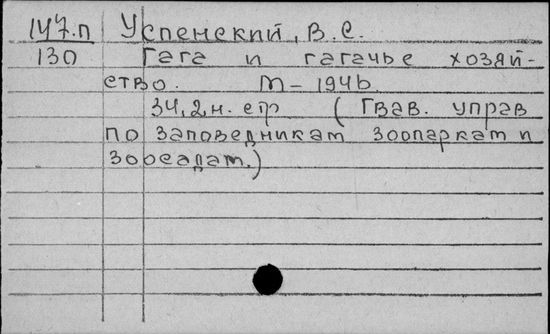 147.п Успенский, В.С.
130 Гага и гагачье хозяй-
ство. М-1946.
34,2н. стр (Глав. управ
по заповедникам зоопаркам и
зоосадам.)